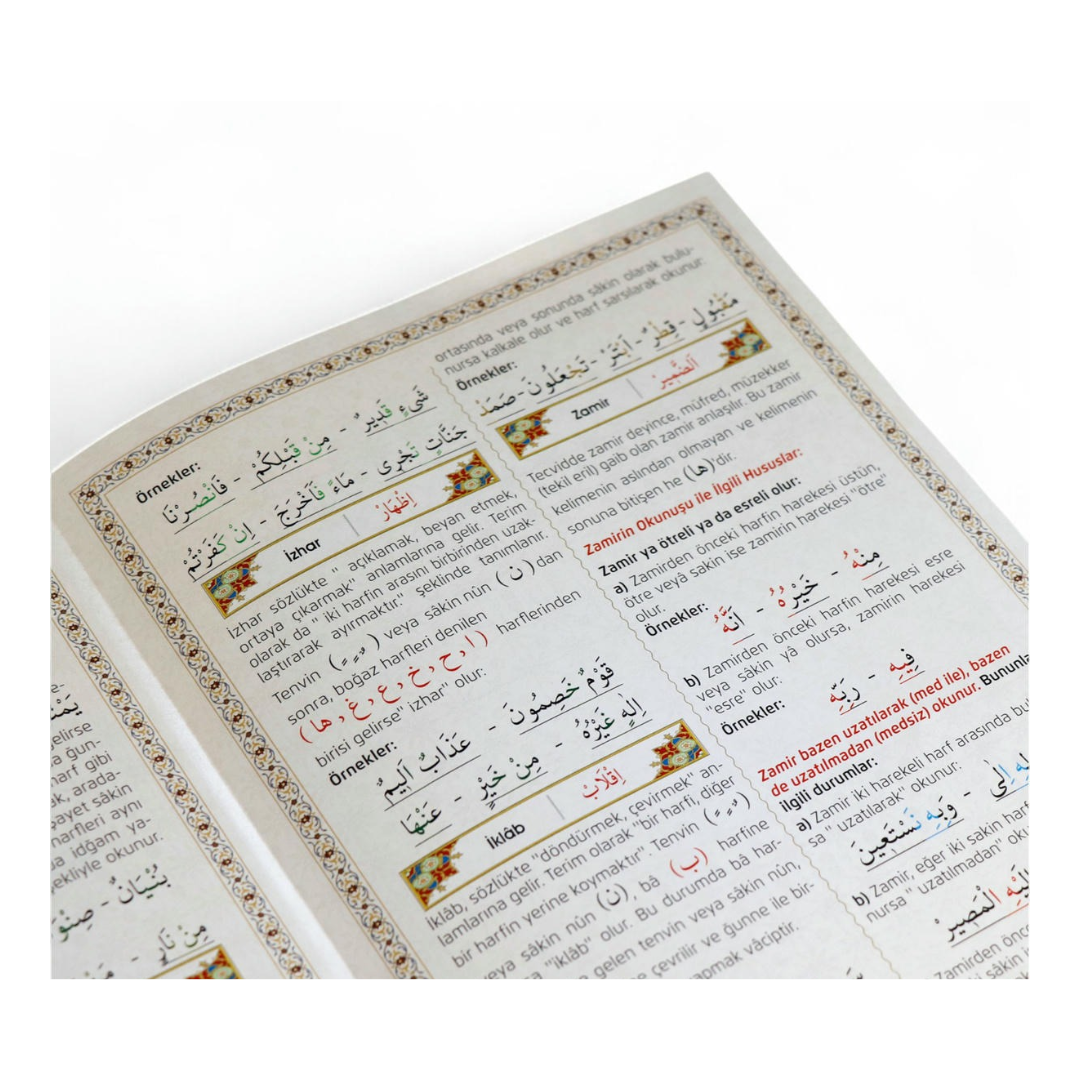 yekliyle okunur.
بُنْيَانٌ - صِنْوَ
مِنْ نَارٍ
Örnekler:
شَيْءٍ قَدِيرٌ - مِنْ قَبْلِكُمْ - فَانْصُرْنَا
جَنَّاتٍ تَجْرِى - مَاءً فَاَخْرَجَ - اِنْ كَفَرْتُمْ
İzhar | اِظْهَارْ
İzhar sözlükte " açıklamak, beyan etmek,
ortaya çıkarmak" anlamlarına gelir. Terim
olarak da " iki harfin arasını birbirinden uzak-
laştırarak ayırmaktır." şeklinde tanımlanır.
Tenvin ( ـٌـٍـً ) veya sâkin nûn (ن) dan
sonra, boğaz harfleri denilen
( ا ، ح ، خ ، ع ، غ ، ها ) harflerinden
birisi gelirse" izhar" olur:
Örnekler:
قَوْمٌ خَصِمُونَ - عَذَابٌ اَلِيمٌ
اِلٰهٍ غَيْرُهُ - مِنْ خَيْرٍ - عَنْهَا
İklâb | اِقْلَابْ
İklâb, sözlükte "döndürmek, çevirmek" an-
lamlarına gelir. Terim olarak "bir harfi, diğer
bir harfin yerine koymaktır". Tenvin ( ـٌـٍـً )
veya sâkin nûn (ن) bâ (ب) harfine
"iklâb" olur. Bu durumda bâ har-
gelen tenvin veya sâkin nûn,
çevrilir ve ğunne ile bir-
yapmak vâciptir.
ortasında veya sonunda sâkin olarak bulu-
nursa kalkale olur ve harf sarsılarak okunur.
Örnekler:
مَقْبُولٍ - قِطْرٌ - اَبْتَرْ - تَجْعَلُونَ - صَمَدْ
Zamir | اَلضَّمِيرْ
Tecvidde zamir deyince, müfred, müzekker
(tekil eril) gaib olan zamir anlaşılır. Bu zamir
kelimenin aslından olmayan ve kelimenin
sonuna bitişen he (ها)'dir.
Zamirin Okunuşu ile İlgili Hususlar:
Zamir ya ötreli ya da esreli olur:
a) Zamirden önceki harfin harekesi üstün,
ötre veyâ sakin ise zamirin harekesi "ötre"
olur.
Örnekler:
مِنْهُ - خَيْرُهُ - اَنَّهُ
b) Zamirden önceki harfin harekesi esre
veya sâkin yâ olursa, zamirin harekesi
"esre" olur.
Örnekler:
فِيهِ - رَبِّهِ
Zamir bazen uzatılarak (med ile), bazen
de uzatılmadan (medsiz) okunur. Bununla
ilgili durumlar:
a) Zamir iki harekeli harf arasında
sa " uzatılarak" okunur:
اِلَى - وَبِهِ نَسْتَعِينَ
b) Zamir, eğer iki sakin
nursa " uzatılmadan"
الْمَصِيرُ
Zamirden